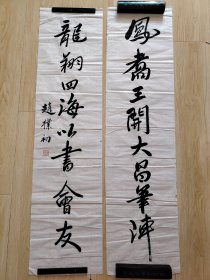 鳳翥王開大昌筆陣
龍翔四海以書會友
趙樸初